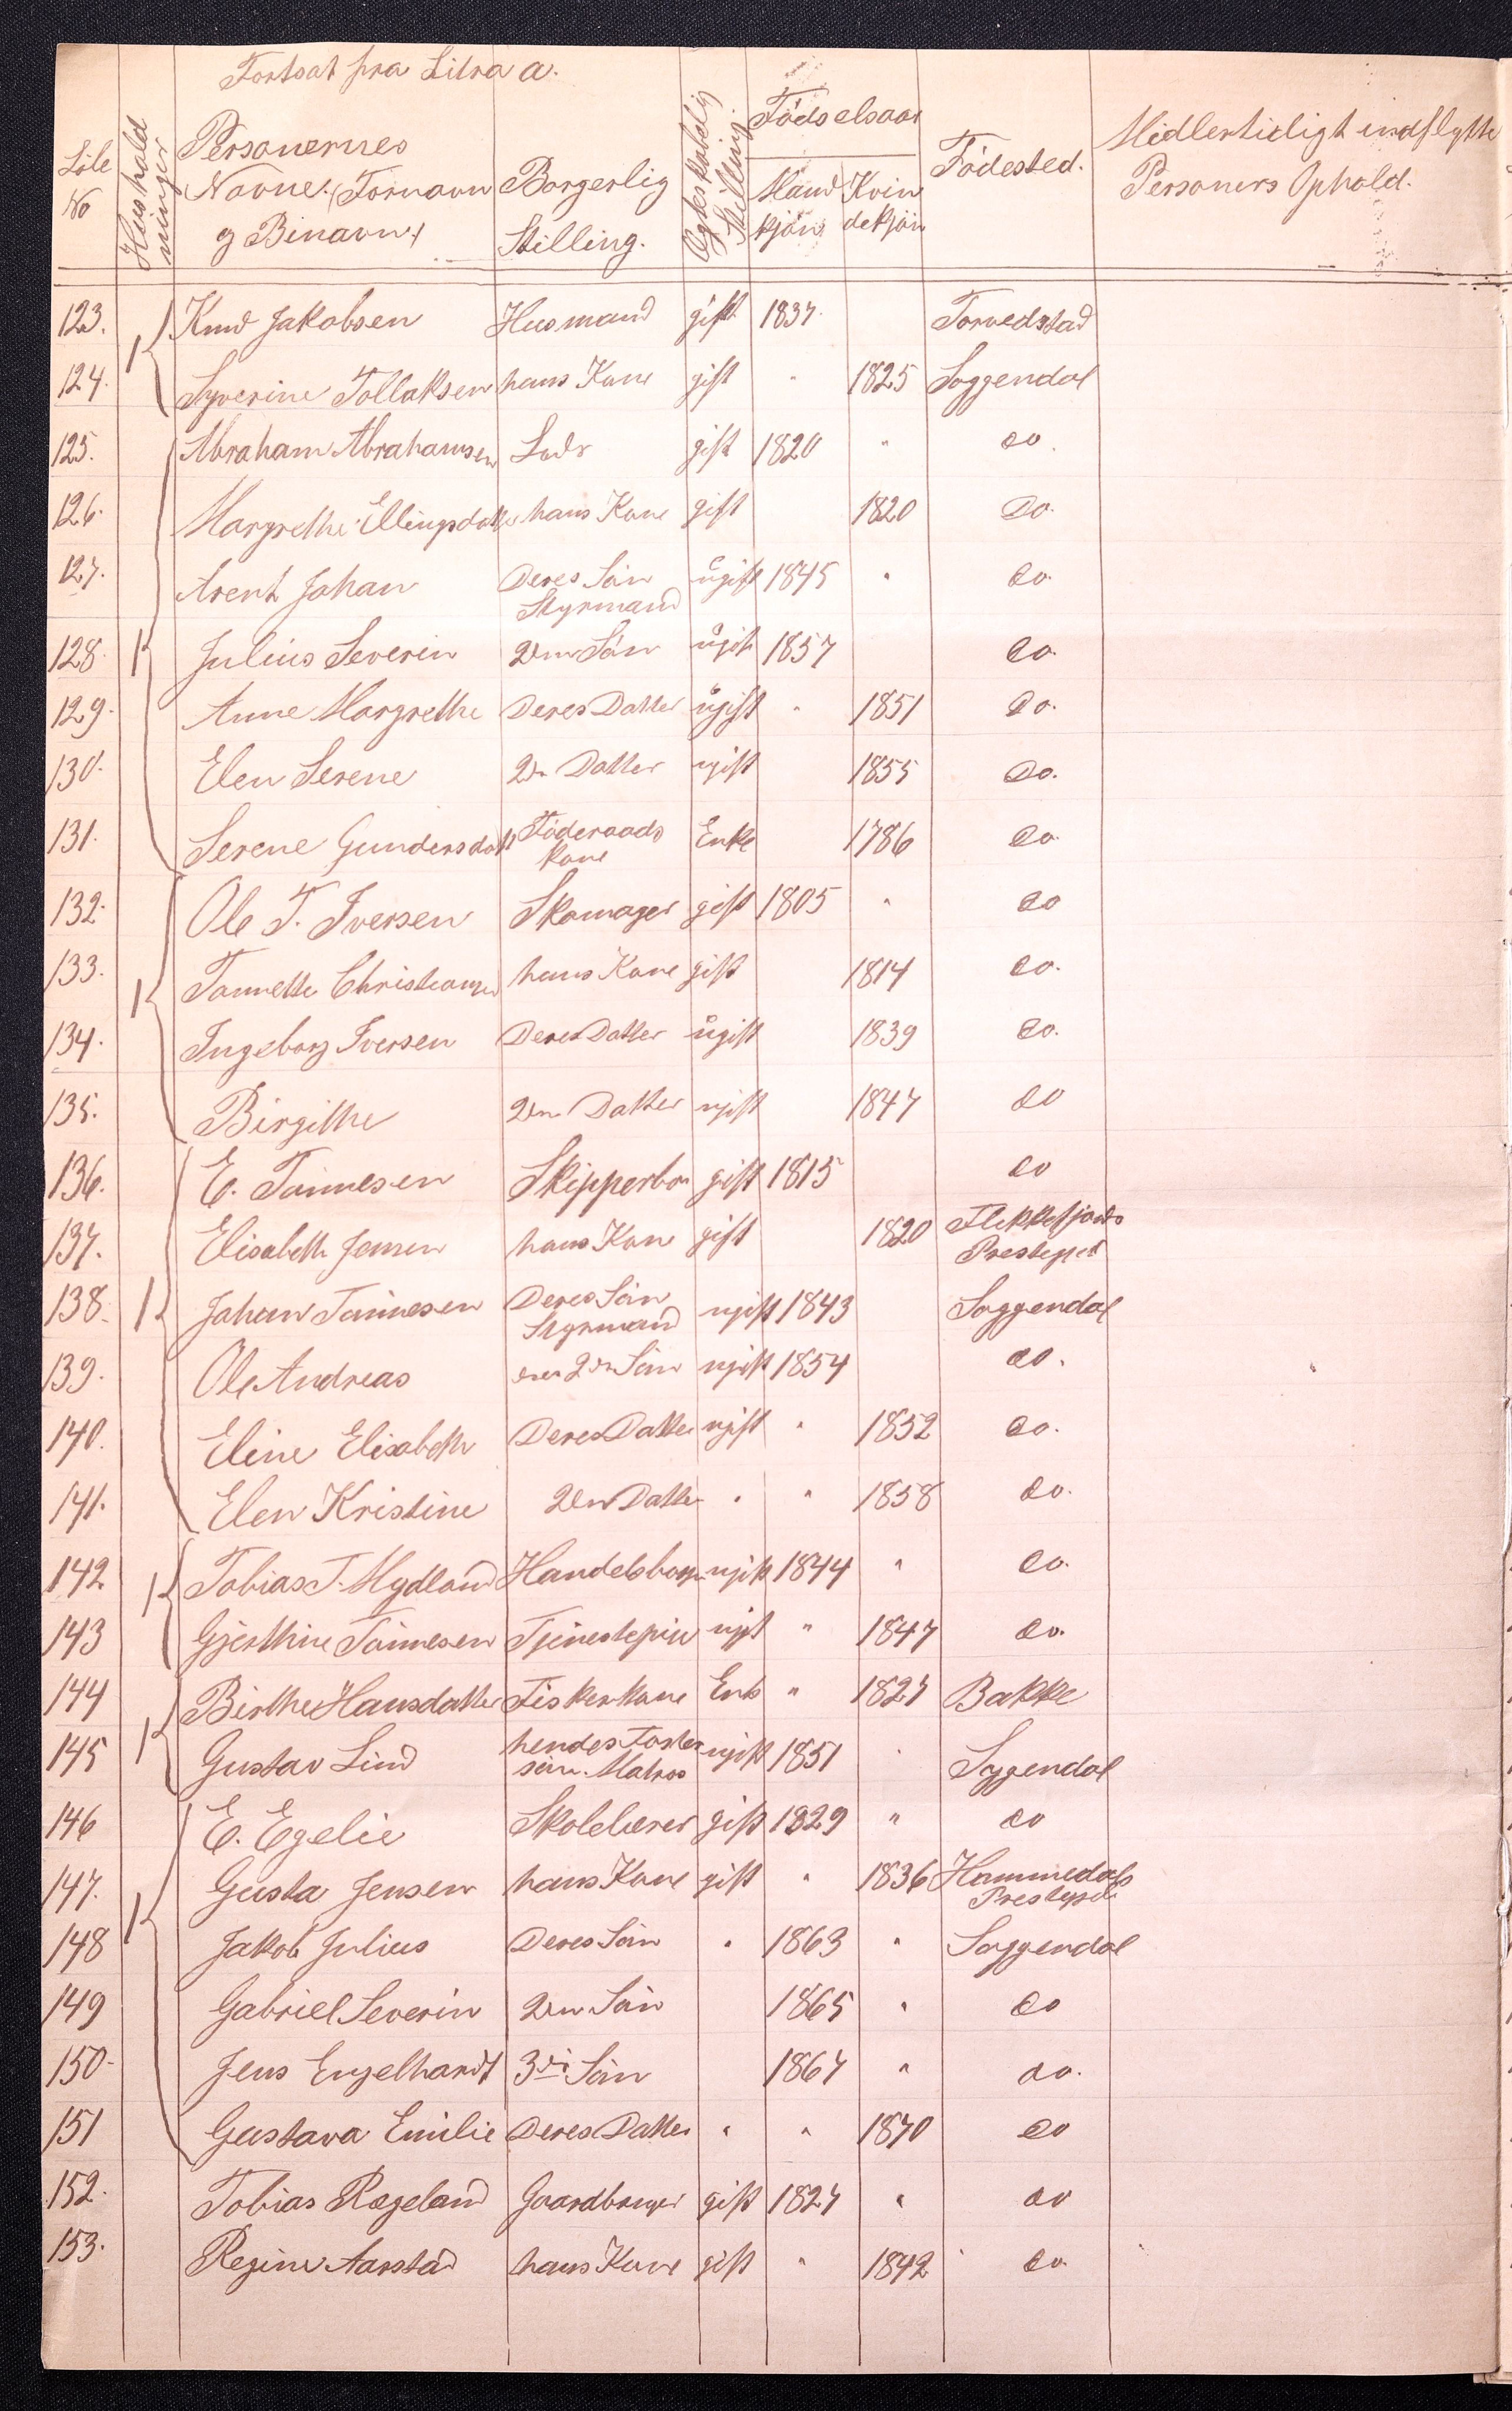 Fortsat fra Litra a.
Löbe No | Hushold ninger | Personernes Navne. (Fornavn og Binavn.) | Borgerlig Stilling. | Ægteskabelig Stilling. | Födselsaar Mandkjön | Kvindekjön | Födested. | Midlertidigt indflytte Personers Ophold.
123. 1 Knud Jakobsen Husmand gift 1837. Torvedstad
124. Syverine Tollaksen hans Kone gift " 1825 Soggendal
125. Abraham Abrahamsen Lods gift 1820 " do.
126. Margrethe Ellingsdatter hans Kone gift 1820 do.
127. Arent Johan Deres Sön Styrmand ugift 1845 " do.
128. 1 Julius Severin 2den Sön ugift 1857 do.
129. Anne Margrethe Deres Datter ugift " 1851 do.
130. Elen Serene 2den Datter ugift 1855 do.
131. Serene Gundersdatt Föderaads Kone Enke 1786 do.
132. Ole T. Iversen Skomager gift 1805 " do
133. 1 Tonnette Christiansen hans Kone gift 1814 do.
134. Ingeborg Iversen Deres Datter ugift 1839 do.
135. Birgithe 2den Datter ugift 1847 do
136. E. Tönnesen Skipperbor gift 1815 do
137. Elisabeth Jensen hans Kone gift 1820 Flekkefjords Prestegjed
138. 1 Johan Tönnesen Deres Sön Styrmand ugift 1843 Soggendal
139. Ole Andreas 2den Sön ugift 1854 do.
140. Eline Elisabeth Deres Datter ugift " 1852 do.
141. Elen Kristine 2den Datter " " 1858 do.
142 1 Tobias T. Mydland Handelsborger ugift 1844 " do.
143 Gjerthine Tönnesen Tjenestepige ugift " 1847 do.
144 Birthe Hansdatter Fiskerkone Enke " 1827 Bakke
145 1 Gustav Lind hendes Foster sön. Matros ugift 1851 " Soggendal
146 E. Egelie Skolelærer gift 1829 " do
147. Gusta Jensen hans Kone gift " 1836 Hommedals Prestegjed
148 1 Jakob Julius Deres Sön " 1863 " Soggendal
149 Gabriel Severin 2den Sön 1865 " do
150. Jens Engelhardt 3die Sön 1867 " do.
151 Gustava Emilie Deres Datter " " 1870 do
152. Tobias Rægeland Gaardbruger gift 1827 " do
153. Regine Aarstad hans Kone gift " 1842 do.